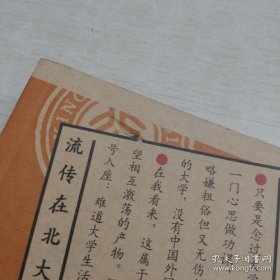 只要是念过
一门心思做功
略嫌粗俗但又无伤
的大学，没有中国外
在我看来，这属于
望相互激荡的产物。
号入座：难道大学生活
流传在北大
孔夫子旧书网